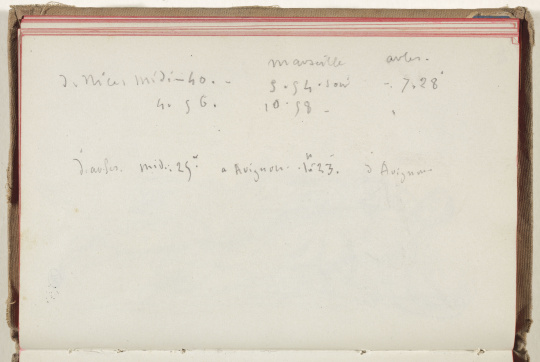 marseille arles.
de Nice midi-40. - 5.54.soir - 7.28
4.56. 10.58 - "
d'arles. midi.25 a Avignon. 1h.23. d'Avignon